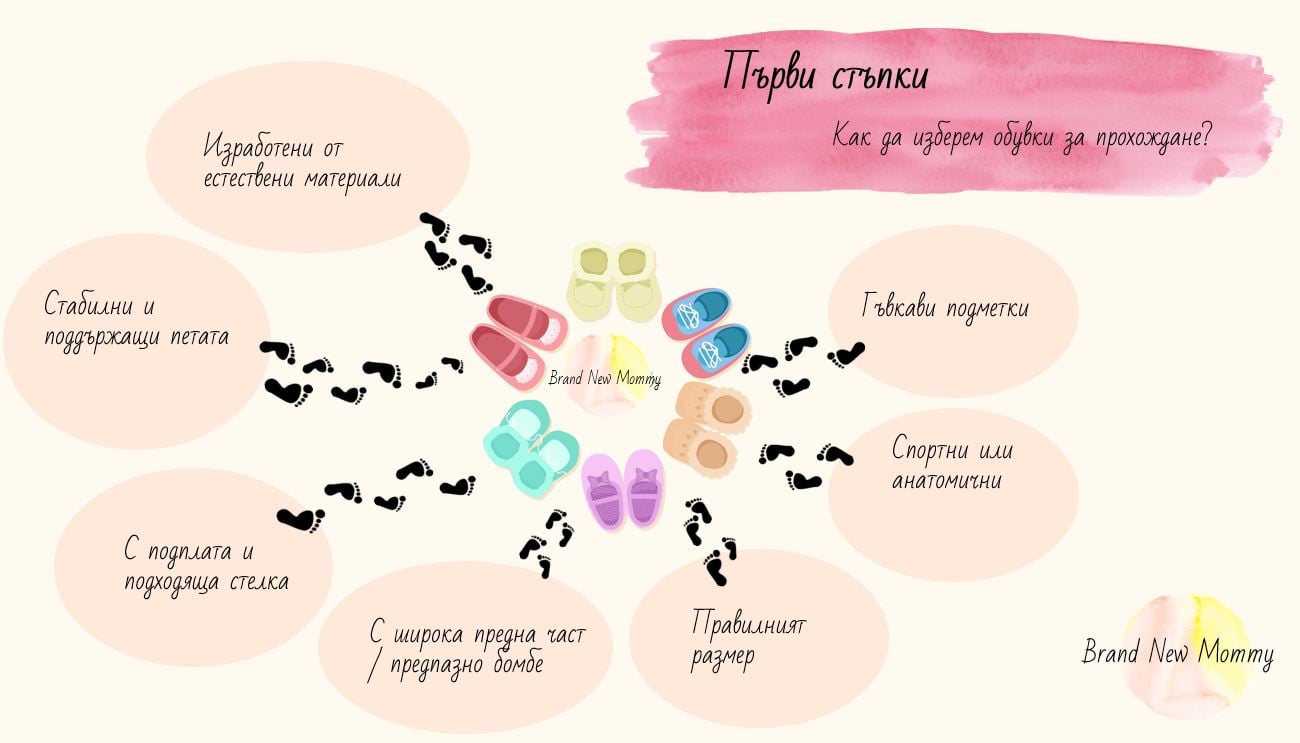 Първи стъпки
Как да изберем обувки за прохождане?
Изработени от
естествени материали
Стабилни и
поддържащи петата
Гъвкави подметки
Brand New Mommy
Спортни или
анатомични
С подплата и
подходяща стелка
С широка предна част
/ предпазно бомбе
Правилният
размер
Brand New Mommy